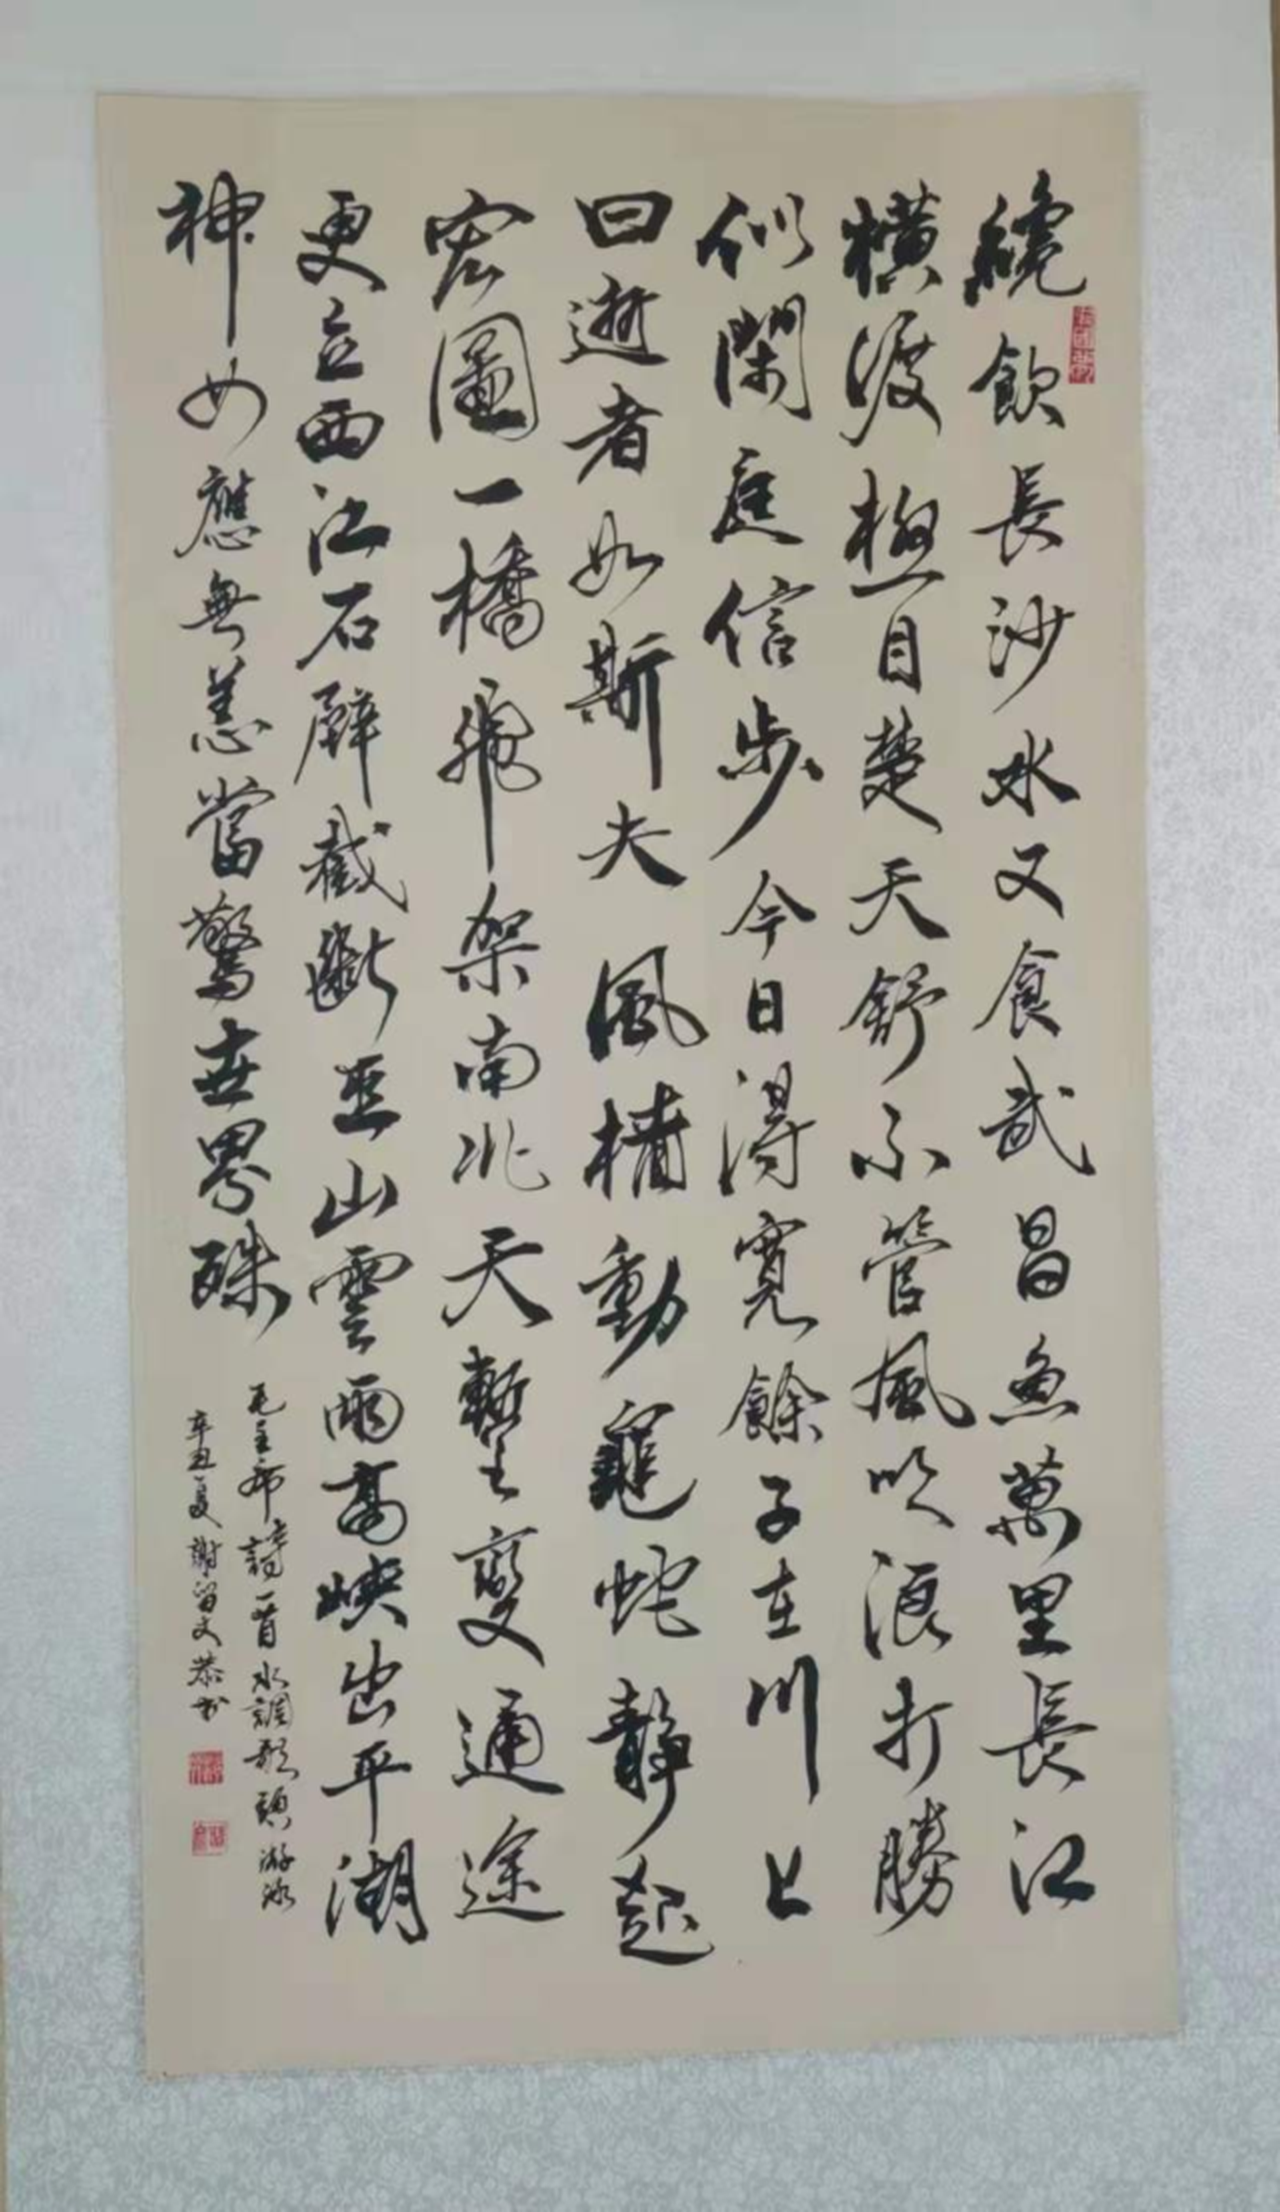 纔飲長沙水又食武昌魚萬里長江
橫渡極目楚天舒不管風吹浪打勝
似閑庭信步今日得寬餘子在川上
曰逝者如斯夫風樯動龜蛇靜起
宏圖一橋飛架南北天塹變通途
更立西江石壁截斷巫山雲雨高峽出平湖
神女應無恙當驚世界殊
毛主席詩一首水調歌頭游泳
辛丑夏謝留文恭書